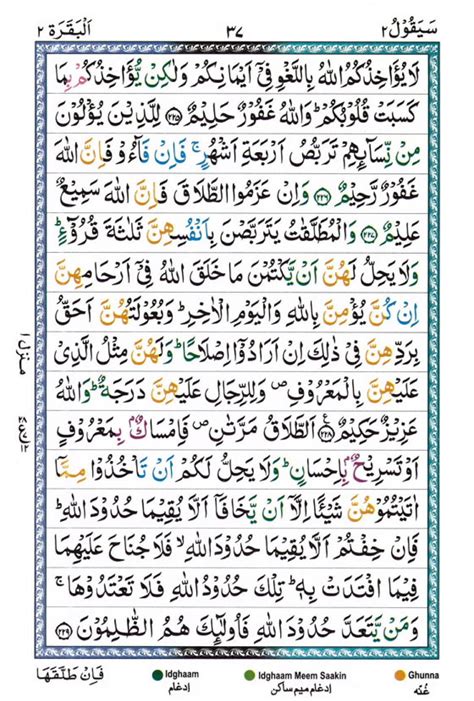 سَيَقُوْلُ ٢ ٣٧ اَلْبَقَرَة ٢
لَا يُؤَاخِذُكُمُ اللّٰهُ بِاللَّغْوِ فِىْٓ اَيْمَانِكُمْ وَلٰكِنْ يُّؤَاخِذُكُمْ بِمَا
كَسَبَتْ قُلُوْبُكُمْ ؕ وَاللّٰهُ غَفُوْرٌ حَلِيْمٌ ﴿٢٢٥﴾ لِلَّذِيْنَ يُؤْلُوْنَ
مِنْ نِّسَآئِهِمْ تَرَبُّصُ اَرْبَعَةِ اَشْهُرٍ ۚ فَاِنْ فَآءُوْ فَاِنَّ اللّٰهَ
غَفُوْرٌ رَّحِيْمٌ ﴿٢٢٦﴾ وَاِنْ عَزَمُوا الطَّلَاقَ فَاِنَّ اللّٰهَ سَمِيْعٌ
عَلِيْمٌ ﴿٢٢٧﴾ وَالْمُطَلَّقٰتُ يَتَرَبَّصْنَ بِاَنْفُسِهِنَّ ثَلٰثَةَ قُرُوْٓءٍ ؕ
وَلَا يَحِلُّ لَهُنَّ اَنْ يَّكْتُمْنَ مَا خَلَقَ اللّٰهُ فِىْٓ اَرْحَامِهِنَّ
اِنْ كُنَّ يُؤْمِنَّ بِاللّٰهِ وَالْيَوْمِ الْاٰخِرِ ؕ وَبُعُوْلَتُهُنَّ اَحَقُّ
بِرَدِّهِنَّ فِىْ ذٰلِكَ اِنْ اَرَادُوْٓا اِصْلَاحًا ؕ وَلَهُنَّ مِثْلُ الَّذِىْ
عَلَيْهِنَّ بِالْمَعْرُوْفِ ۪ وَلِلرِّجَالِ عَلَيْهِنَّ دَرَجَةٌ ؕ وَاللّٰهُ
عَزِيْزٌ حَكِيْمٌ ﴿٢٢٨﴾ اَلطَّلَاقُ مَرَّتٰنِ ۪ فَاِمْسَاكٌۢ بِمَعْرُوْفٍ
اَوْ تَسْرِيْحٌۢ بِاِحْسَانٍ ؕ وَلَا يَحِلُّ لَكُمْ اَنْ تَاْخُذُوْا مِمَّآ
اٰتَيْتُمُوْهُنَّ شَيْئًا اِلَّآ اَنْ يَّخَافَآ اَلَّا يُقِيْمَا حُدُوْدَ اللّٰهِ ؕ
فَاِنْ خِفْتُمْ اَلَّا يُقِيْمَا حُدُوْدَ اللّٰهِ ۙ فَلَا جُنَاحَ عَلَيْهِمَا
فِيْمَا افْتَدَتْ بِهٖ ؕ تِلْكَ حُدُوْدُ اللّٰهِ فَلَا تَعْتَدُوْهَا ۚ
وَمَنْ يَّتَعَدَّ حُدُوْدَ اللّٰهِ فَاُولٰٓئِكَ هُمُ الظّٰلِمُوْنَ ﴿٢٢٩﴾
منزل ١
فَاِنْ طَلَّقَهَا
Idghaam
ادغام
Idghaam Meem Saakin
ادغام میم ساکن
Ghunna
غُنّه